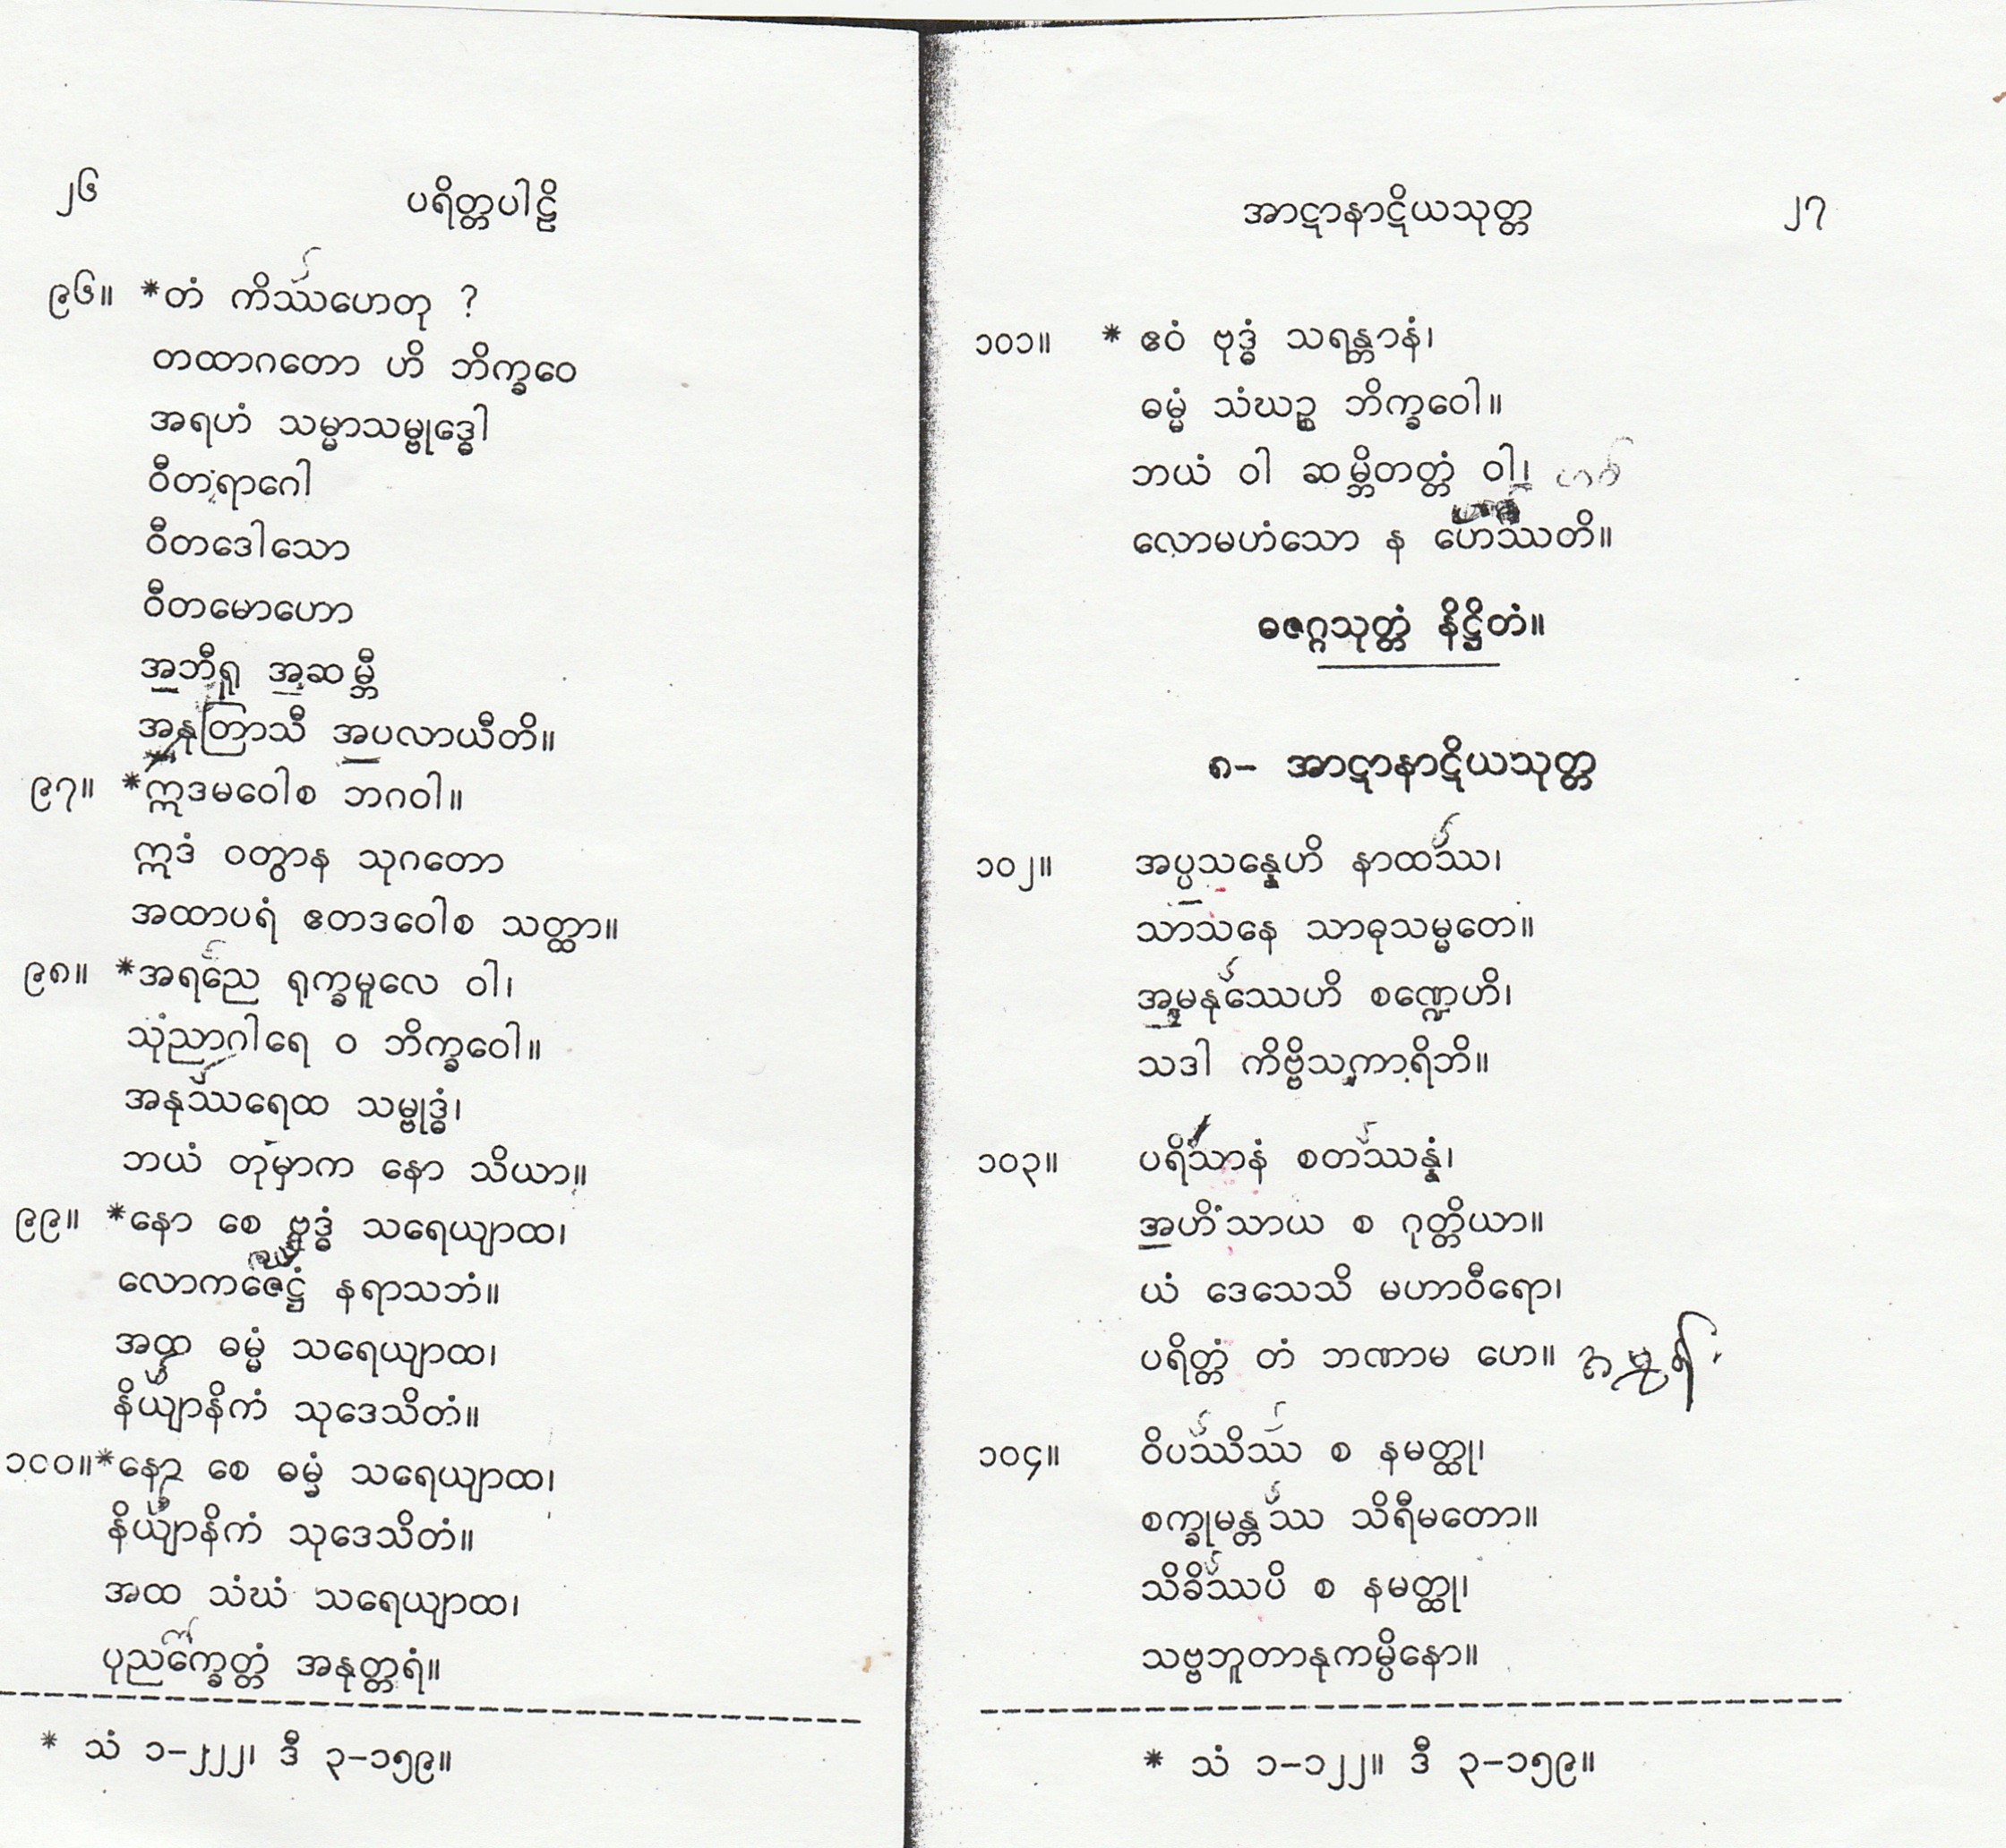 ၂၆ ပရိတ္တပါဠိ
၉၆။ *တံ ကိဿဟေတု ?
တထာဂတော ဟိ ဘိက္ခဝေ
အရဟံ သမ္မာသမ္ဗုဒ္ဓေါ
ဝီတရာဂေါ
ဝီတဒေါသော
ဝီတမောဟော
အဘီရူ အဆမ္ဘီ
အနုတြာသီ အပလာယီတိ။
၉၇။ *ဣဒမဝေါစ ဘဂဝါ။
ဣဒံ ဝတွာန သုဂတော
အထာပရံ ဧတဒဝေါစ သတ္ထာ။
၉၈။ *အရညေ ရုက္ခမူလေ ဝါ၊
သုံညာဂါရေ ဝ ဘိက္ခဝေါ။
အနုဿရေထ သမ္ဗုဒ္ဓံ၊
ဘယံ တုမှာက နော သိယာ။
၉၉။ *နော စေ ဗုဒ္ဓံ သရေယျာထ၊
လောကဇေဋ္ဌံ နရာသဘံ။
အထ ဓမ္မံ သရေယျာထ၊
နိယျာနိကံ သုဒေသိတံ။
၁၀၀။*နော စေ ဓမ္မံ သရေယျာထ၊
နိယျာနိကံ သုဒေသိတံ။
အထ သံဃံ သရေယျာထ၊
ပုညက္ခေတ္တံ အနုတ္တရံ။
* သံ ၁-၂၂၂၊ ဒီ ၃-၁၅၉။
အာဋာနာဋိယသုတ္တ ၂၇
၁၀၁။ * ဧဝံ ဗုဒ္ဓံ သရန္တာနံ၊
ဓမ္မံ သံဃဉ္စ ဘိက္ခဝေါ။
ဘယံ ဝါ ဆမ္ဘိတတ္တံ ဝါ၊
လောမဟံသော န ဟေဿတိ။
ဓဇဂ္ဂသုတ္တံ နိဋ္ဌိတံ။
၈- အာဋာနာဋိယသုတ္တ
၁၀၂။ အပ္ပသန္နေဟိ နာထဿ၊
သာသနေ သာဓုသမ္မတေ။
အမနုဿေဟိ စဏ္ဍေဟိ၊
သဒါ ကိဗ္ဗိသကာရိဘိ။
၁၀၃။ ပရိသာနံ စတဿန္နံ၊
အဟိံသာယ စ ဂုတ္တိယာ။
ယံ ဒေသေသိ မဟာဝီရော၊
ပရိတ္တံ တံ ဘဏာမ ဟေ။
၁၀၄။ ဝိပဿိဿ စ နမတ္ထု၊
စက္ခုမန္တဿ သိရီမတော။
သိခိဿပိ စ နမတ္ထု၊
သဗ္ဗဘူတာနုကမ္ပိနော။
* သံ ၁-၁၂၂။ ဒီ ၃-၁၅၉။